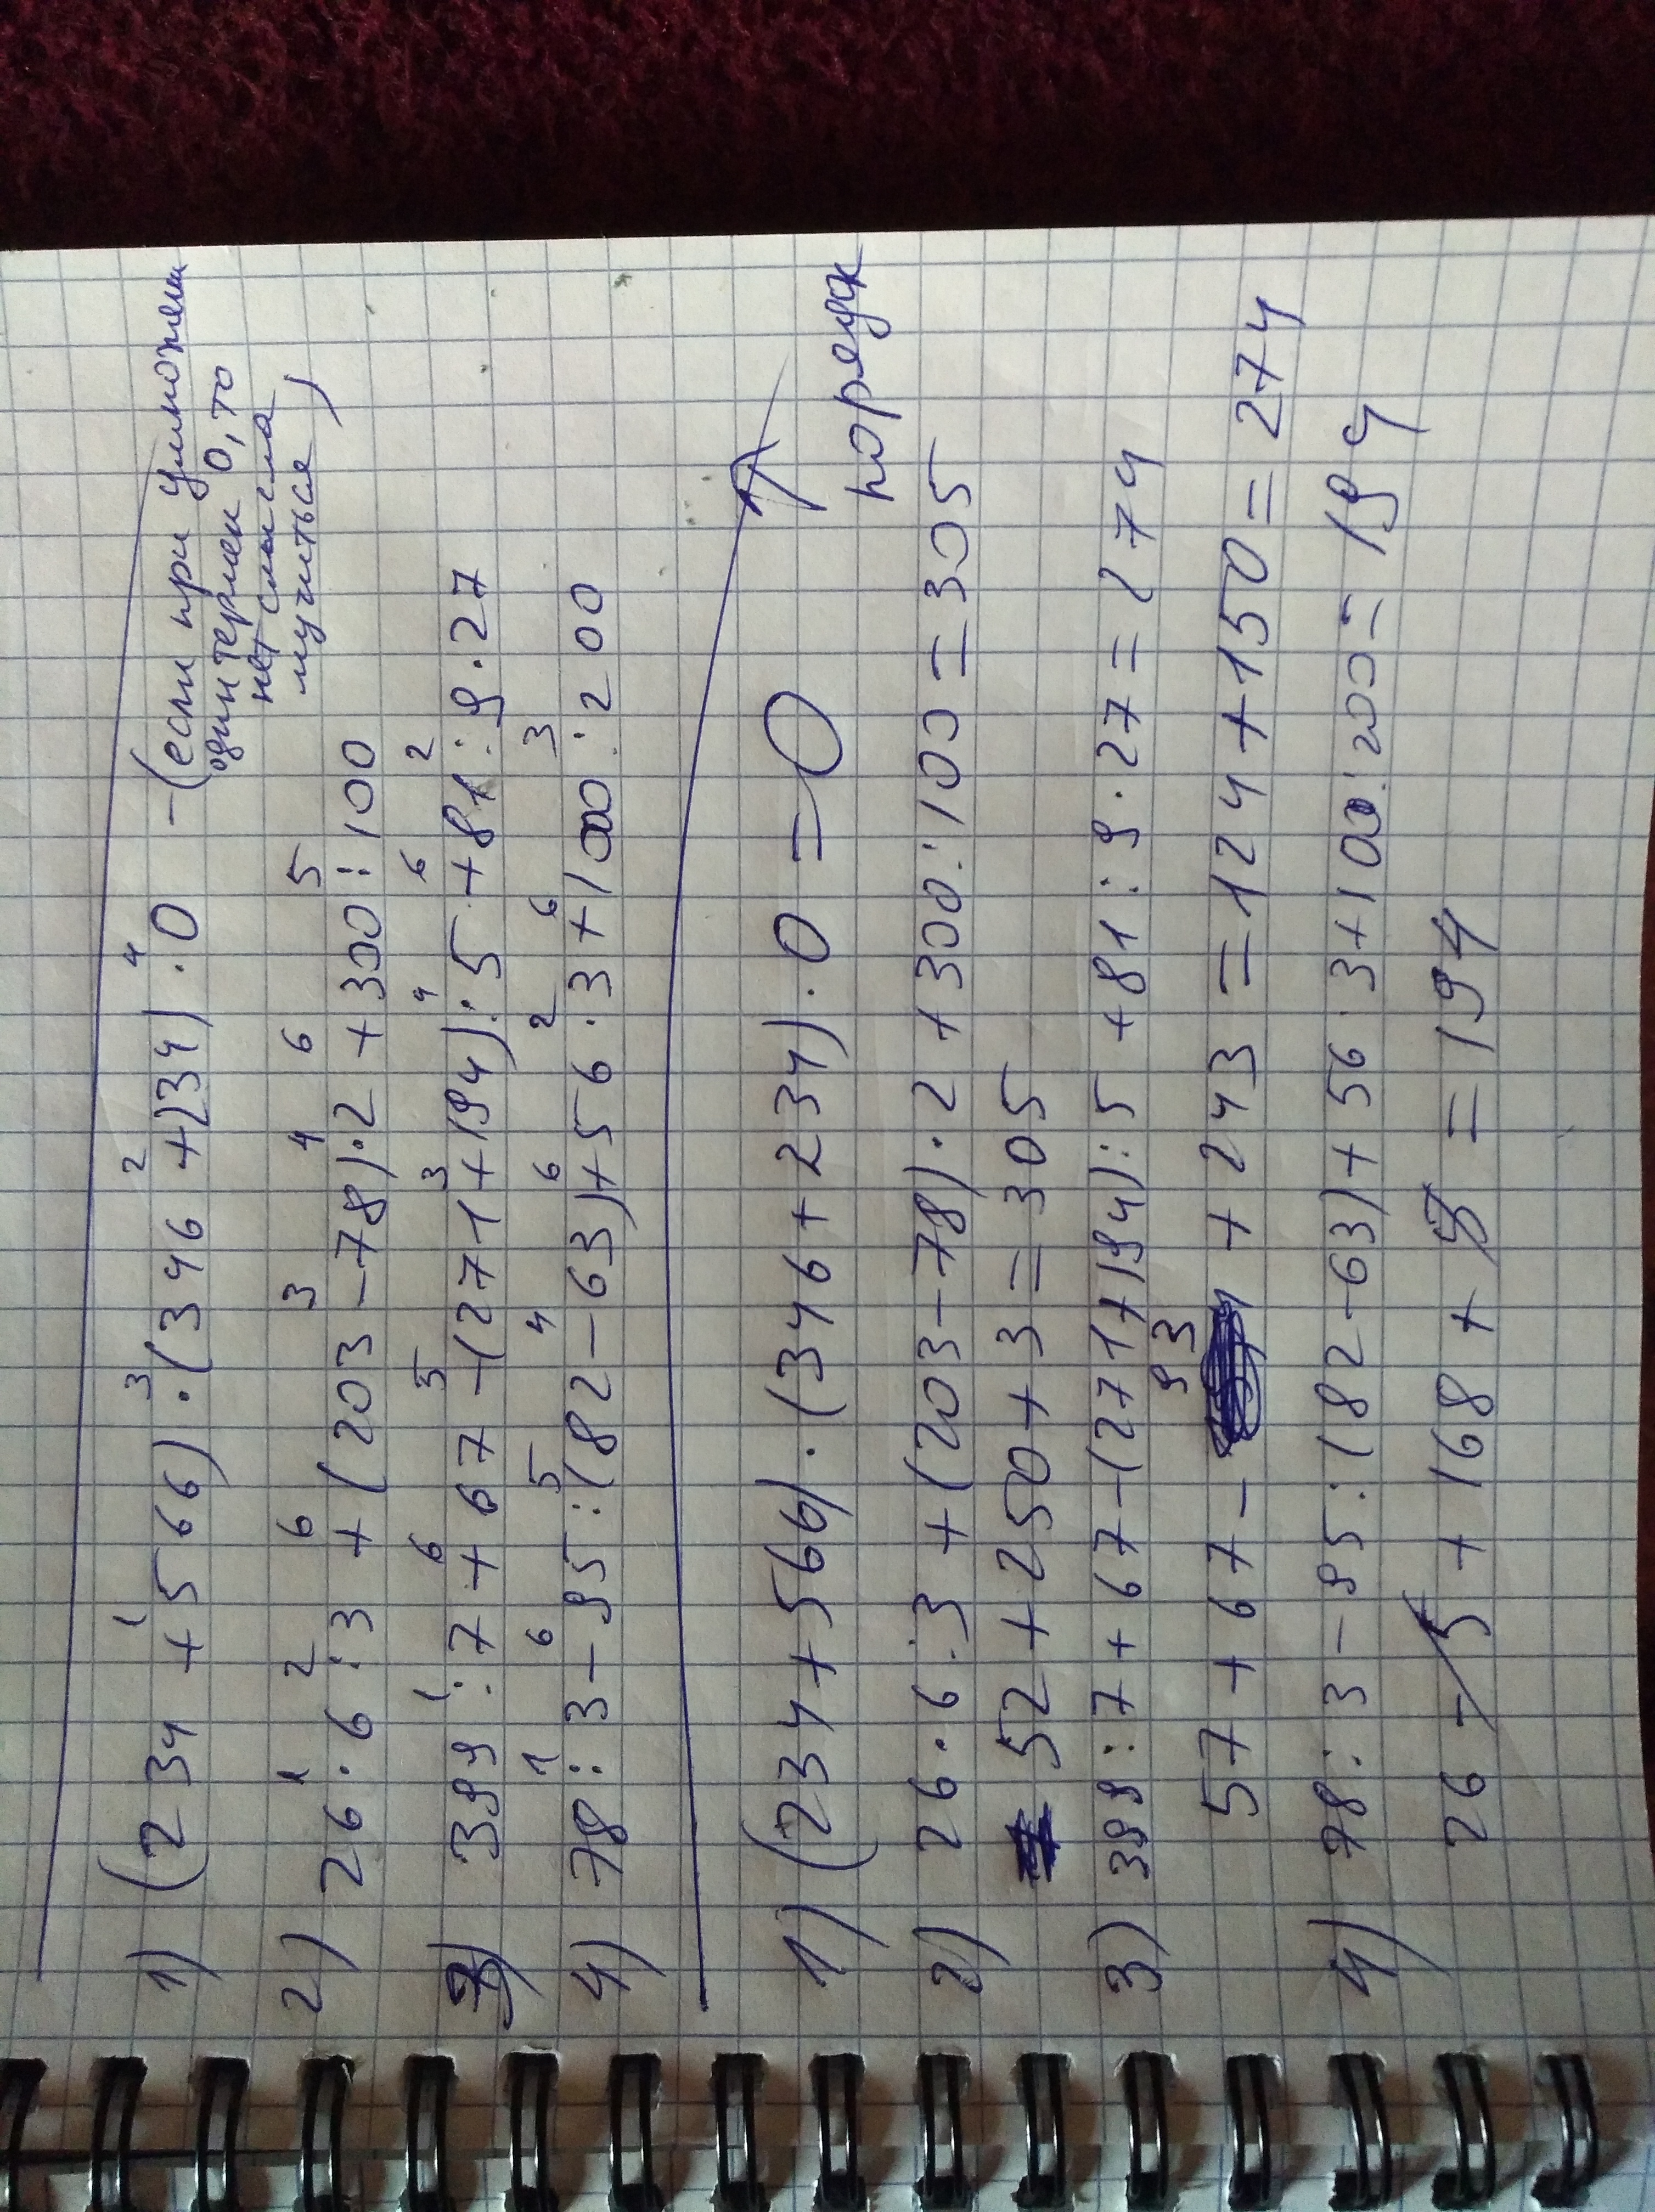 1) (234 + 566) · (346 + 234) · 0 - (если при умножении
один термен 0, то
нет смысла
мучиться)
1 3 2 4
1 2 6 3 4 6 5
2) 26 · 6 : 3 + (203 - 78) · 2 + 300 : 100
1 6 5 3 4 6 2
3) 399 : 7 + 67 - (271 + 194) : 5 + 81 : 9 · 27
1 6 5 4 6 2 6 3
4) 78 : 3 - 95 : (82 - 63) + 56 · 3 + 1000 : 200
порядк
1) (234 + 566) · (346 + 234) · 0 = 0
2) 26 · 6 : 3 + (203 - 78) · 2 + 300 : 100 = 305
52 + 250 + 3 = 305
3) 399 : 7 + 67 - (271 + 194) : 5 + 81 : 9 · 27 = 274
93
57 + 67 - + 243 = 124 + 150 = 274
4) 78 : 3 - 95 : (82 - 63) + 56 · 3 + 100 : 200 = 194
26 - 5 + 168 + 5 = 194